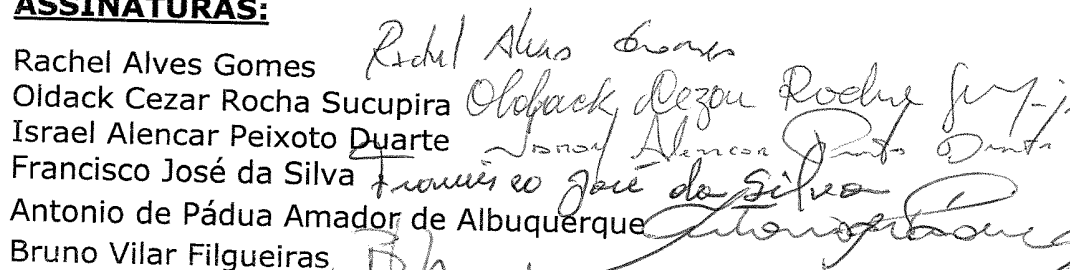 ASSINATURAS:
Rachel Alves Gomes Rachel Alves Gomes
Oldack Cezar Rocha Sucupira Oldack Cezar Rocha
Israel Alencar Peixoto Duarte Israel Alencar Duarte
Francisco José da Silva Francisco José da Silva
Antonio de Pádua Amador de Albuquerque Antonio
Bruno Vilar Filgueiras